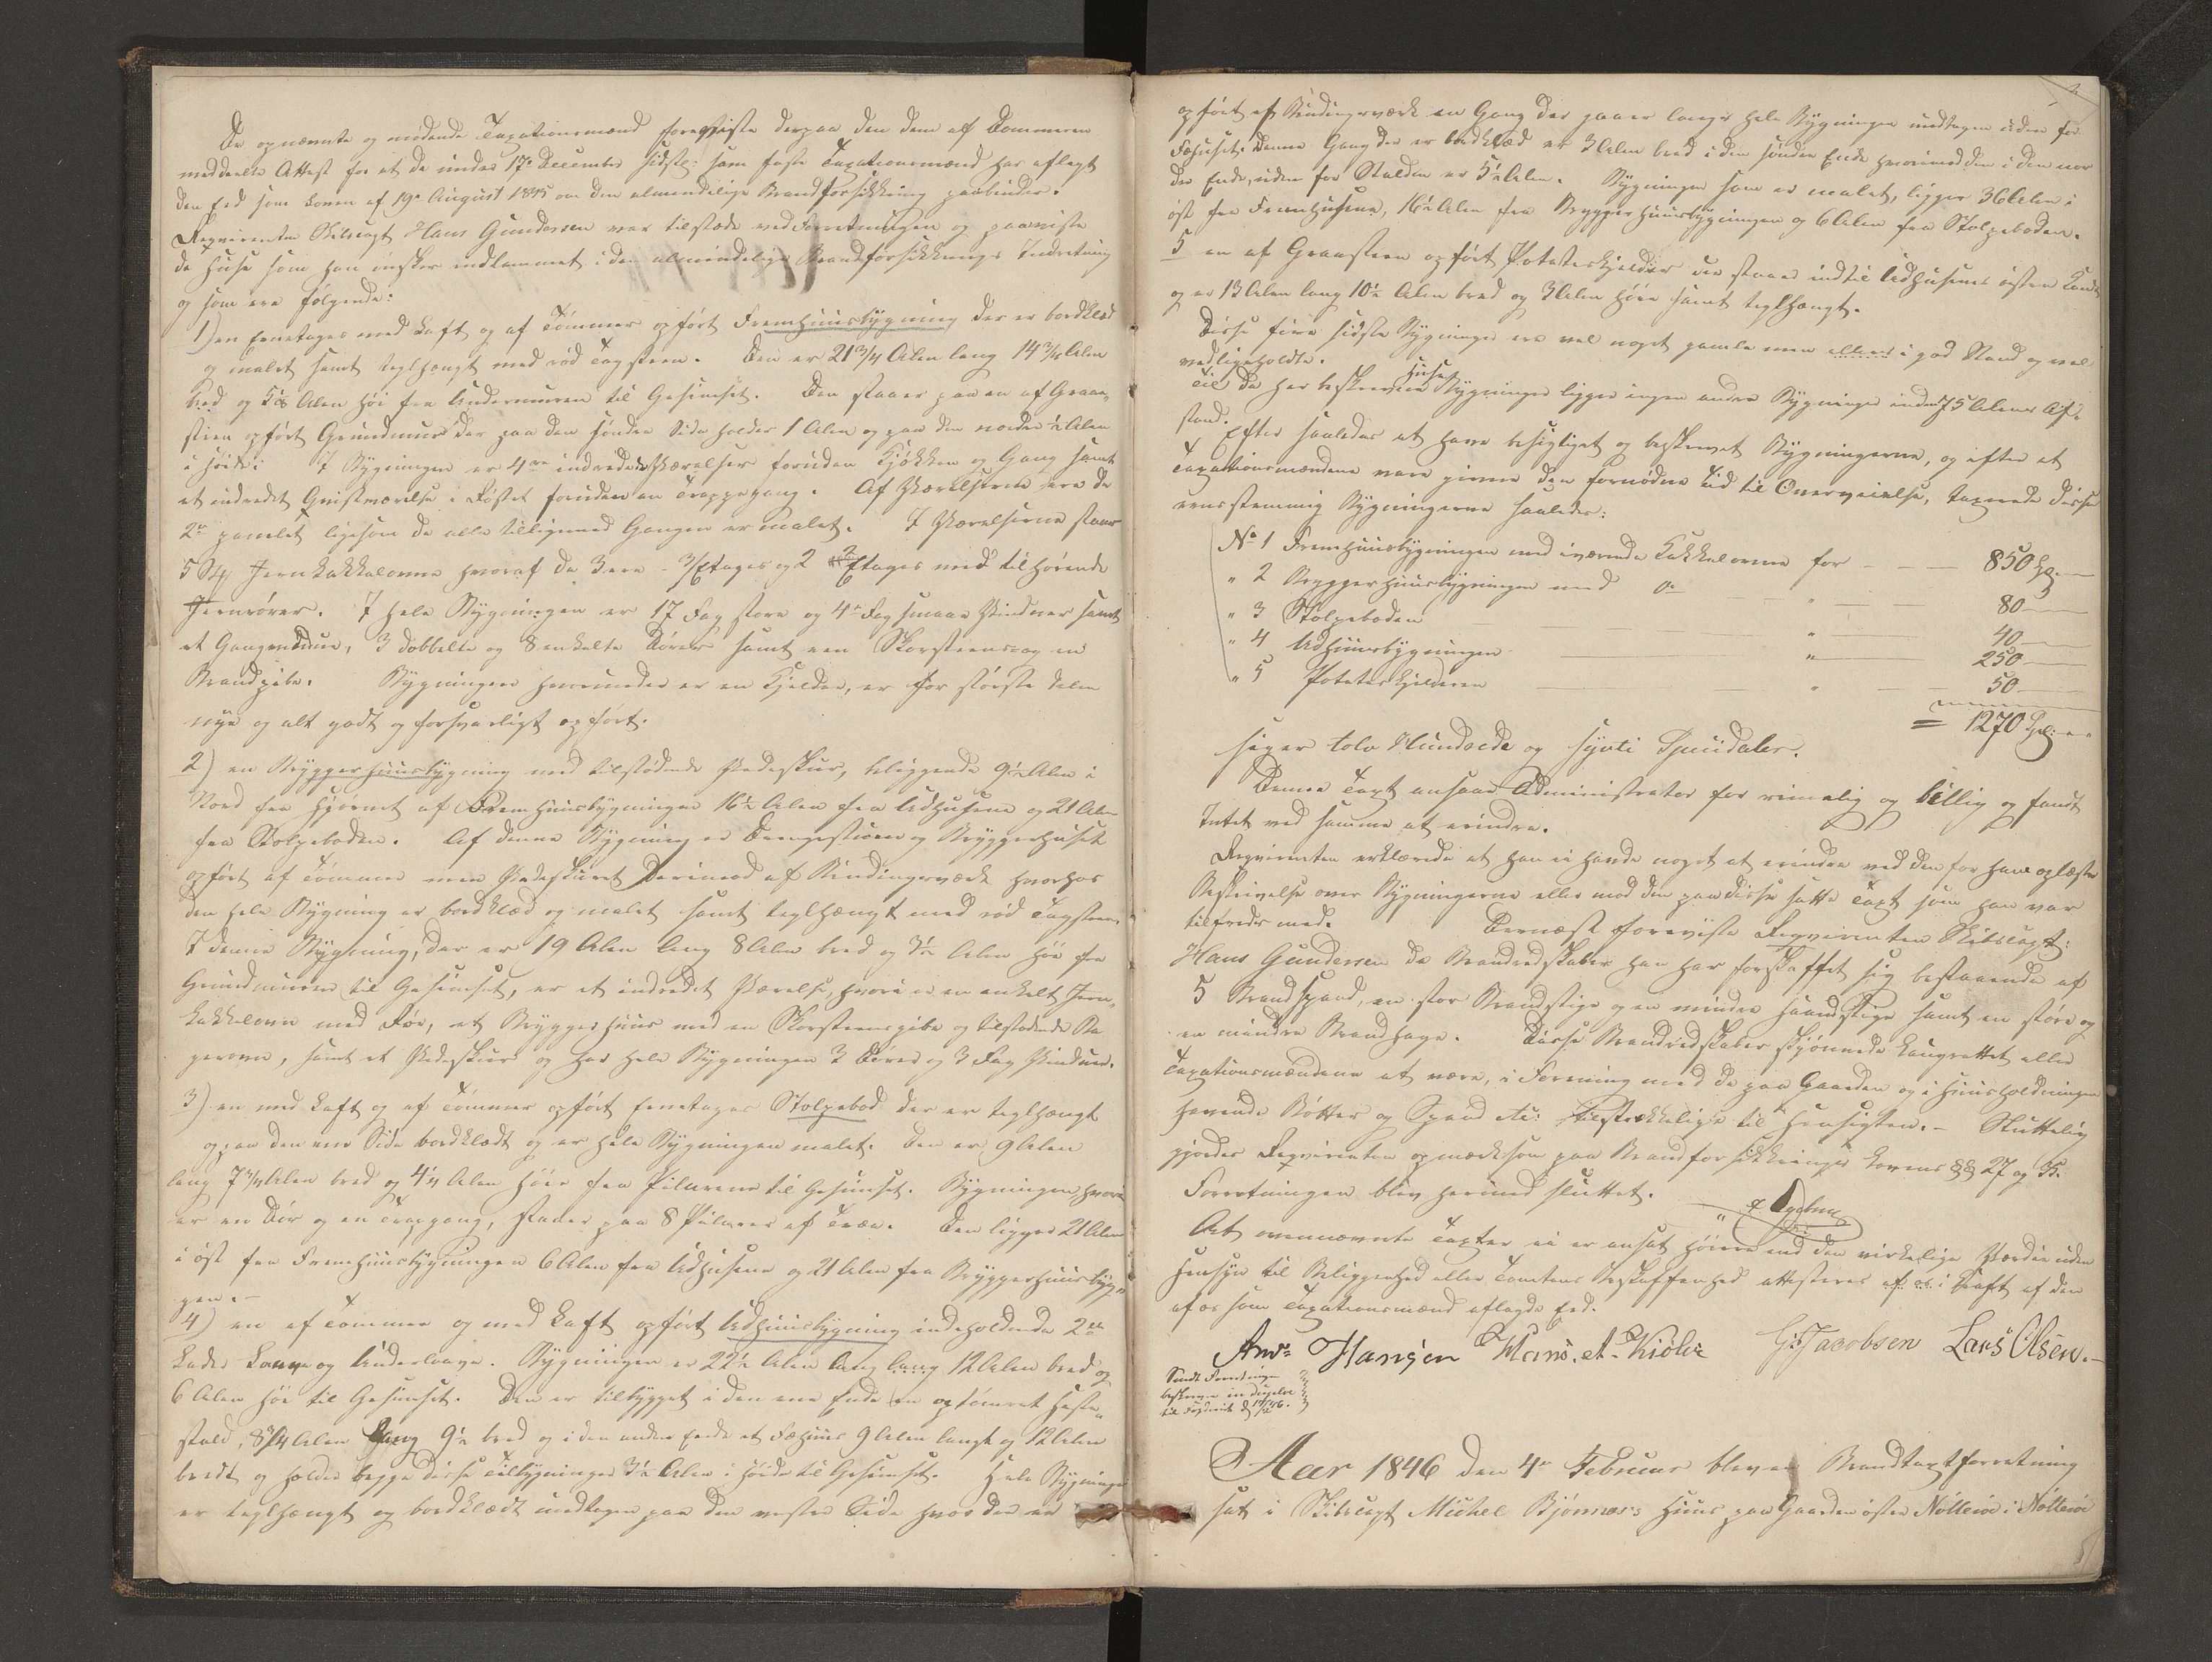 De opnævnte og mødende Taxationsmænd foreviste derpaa den dem af Dommeren
meddeelte Attest for at de under 17de December sidstl: som faste Taxationsmænd har aflagt
den Eed som Loven af 19de August 1845 om den almindelige Brandforsikkring paabinder.
Reqvirenten Skibscapt Hans Gundersen var tilstæde ved Forretningen og paaviste
de Huse som han ønsker indlemmet i den almindelige Brandforsikkrings Indretning
og som ere følgende:
1) en Eenetages med Loft og af Tømmer opført Fremhuusbygning der er bordklæd
og malet samt teglhængt med rød Tagsteen. Den er 21 3/4 Alen lang 14 3/4 Alen
bred og 5 1/8 Alen høi fra Undermuren til Gesimset. Den staaer paa en af Graae
steen opført Grundmuur der paa den søndre Side holder 1 Alen og paa den nordre 1/2 Alen
i Høide: I Bygningen er 4re indredede Værelser foruden Kjøkken og Gang samt
et indredet Qvistværelse i Røstet foruden en Trappegang. Af Værelserne ere de
2de panelet ligesom de alle tilligemed Gangen er malet. I Værelserne staaer
5 Stk Jernkakkelovne hvoraf de 3 ere 3 Etages og 2 2 Etages med tilhørende
Jernrører. I hele Bygningen er 17 Fag store og 4re Fag smaae Vinduer samt
et Gangvindue, 3 dobbelte og 8 enkelte Dører samt een Skorsteens og en
Brandpibe. Bygningen hvorunder er en Kjelder, er for største delen
nye og alt godt og forsvarligt opført.
2) en Bryggerhuusbygning med tilstødende Vedeskuur, beliggende 9 1/2 Alen i
Nord fra Hjørnet af Fremhuusbygningen 16 1/2 Alen fra Udhusene og 21 Alen
fra Stolpeboden. Af denne Bygning er Drengestuen og Bryggerhuset
opført af Tømmer men Vedeskuret derimod af Bindingsværk hvorhos
den hele Bygning er bordklæd og malet samt teglhængt med rød Tagsteen.
I denne Bygning, der er 19 Alen lang 8 Alen bred og 3 1/2 Alen høi fra
Grundmuren til Gesimset, er et indredet Værelse, hvori er en enkelt Jern
kakkelovn med Rør, et Bryggerhuus med en Skorsteenspibe og tilstødende Ba
gerovn, samt et Vedeskuur og har hele Bygningen 3 Dører og 3 Fag Vinduer.
3) en med Loft og af Tømmer opført Eenetages Stolpebod der er teglhængt
og paa den ene Side bordklædt og er hele Bygningen malet. Den er 9 Alen
lang 7 3/4 Alen bred og 4 1/4 Alen høi fra Pilarene til Gesimset. Bygningen hvori
er en Dør og en Trapgang, staaer paa 8 Pilarer af Træe. Den ligger 21 Alen
i øst fra Fremhuusbygningen 6 Alen fra Udhusene og 21 Alen fra Bryggerhuusbyg
gen.-
4) en af Tømmer og med Loft opført Udhuusbygning indeholdende 2de
Lader Laave og Underlaave. Bygningen er 22 1/2 Alen lang lang 12 Alen bred og
6 Alen høi til Gesimset. Den er tilbygget i den ene Ende en optømret Heste
stald, 8 3/4 Alen lang 9 1/2 bred og i den anden Ende et Fæhuus 9 Alen langt og 12 Alen
bredt og holder begge disse Tilbygninger 3 1/2 Alen i Høide til Gesimset. Hele Bygningen
er teglhængt og bordklædt undtagen paa den vestre Side hvor der er
opført af Bindingsværk en Gang der gaaer langs hele Bygningen undtagen uden for
Fæhuset. Denne Gang der er bordklæd er 3 Alen bred i den søndre Ende hvorimod den i den nor
dre Ende, uden for Stalden er 5 1/2 Alen. Bygningen som er malet, ligger 36 Alen i
øst fra Fremhusene, 16 1/2 Alen fra Bryggerhuusbygningen og 6 Alen fra Stolpeboden.
5 en af Graasteen opført Potateskjelder der staaer indtil Udhusenes østre Kandt
og er 13 Alen lang 10 1/2 Alen bred og 3 Alen høi samt teglhængt.
Disse fire sidste Bygninger ere vel noget gamle men ellers i god Stand og vel
vedligeholdte.
Huse
Til de her beskrevne Bygninger ligger ingen andre Bygninger inden 75 Alens Af
stand.
Efter saaledes at have besigtiget og beskrevet Bygningerne, og efter at
Taxationsmændene vare givne den fornødne Tid til Overveielse, taxerede disse
eensstemmig Bygningerne saaledes:
No 1 Fremhuusbygningen med iværende Kakkelovne for 850 Spd.
" 2 Bryggerhuusbygningen med do " 80
" 3 Stolpeboden " 40
" 4 Udhuusbygningen " 250
" 5 Potateskjelderen " 50
= 1270 Spd:
siger tolv Hundrede og Sytti Speciedaler.
Denne Taxt ansaae Administrator for rimelig og billig og fandt
Intet ved samme at erindre.
Reqvirenten erklærede at han ei havde noget at erindre ved den for ham oplæste
Beskrivelse over Bygningerne eller mod den paa disse satte Taxt som han var
tilfreds med. Dernæst foreviste Reqvirenten Skibscapt:
Hans Gundersen de Brandredskaber han har forskaffet sig bestaaende af
5 Brandspand, en stor Brandstige og en mindre Haandstige samt en større og
en mindre Brandhage. Disse Brandredskaber skjønnede Laugrettet eller
Taxationsmændene at være, i Forening med de paa Gaarden og i Huusholdningen
havende Bøtter og Spand etc: tilstrækkelige til Hensigten.- Sluttelig
gjordes Reqvirenten opmærksom paa Brandforsikkrings Lovens §§ 27 og 35.
Forretningen blev hermed sluttet.
At ovennævnte Taxter ei er ansat høiere end den virkelige Værdie uden
Hensyn til Beliggenhed eller Tomtens Beskaffenhed attesteres af os i Kraft af den
af os som Taxationsmænd aflagde Eed.
Andr Hansen Hans. A. Kiølø G: Jacobsen Lars Olsen.-
Aar 1846 den 4de Februar blev en Brandtaxtforretning
sat i Skibscapt Michel Bjønnæs's Huus paa Gaarden østre Nøtterøe i Nøtterøe